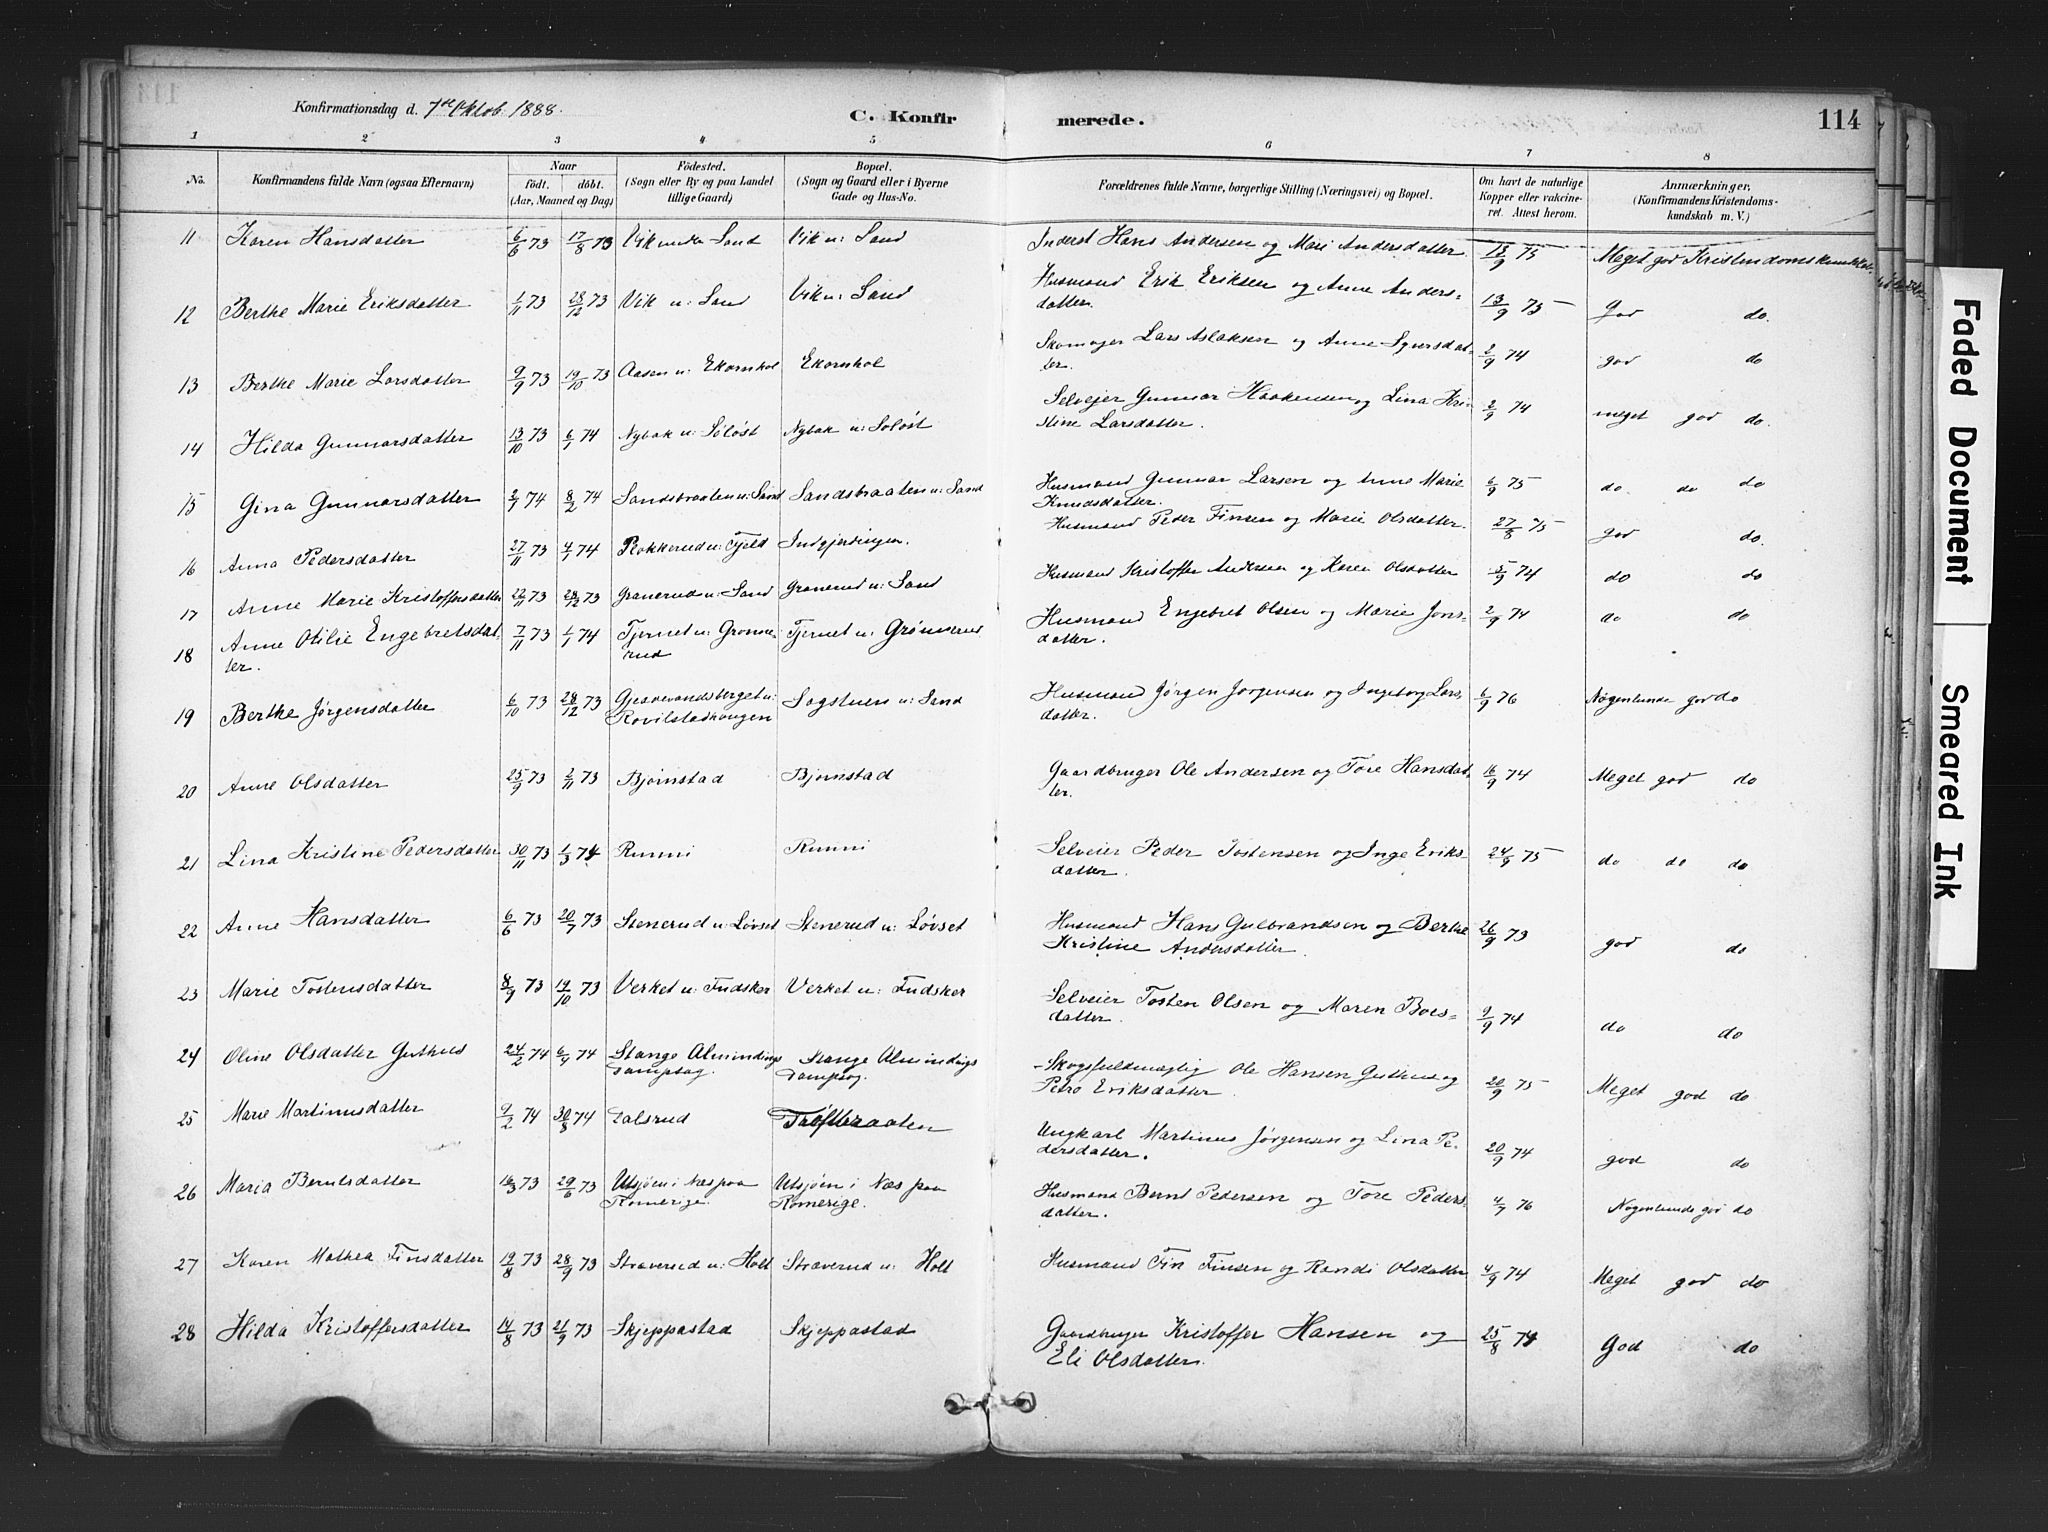 Konfirmationsdag d. 7de Oktob. 1888.
C. Konfirmerede.
114
1 2 3 4 5 6 7 8
No.
Konfirmandens fulde Navn (ogsaa Efternavn)
Naar
födt. döbt.
(Aar, Maaned og Dag)
Födested.
(Sogn eller By og paa Landet
tillige Gaard)
Bopæl.
(Sogn og Gaard eller i Byerne
Gade og Hus-No.
Forældrenes fulde Navne, borgerlige Stilling (Næringsvei) og Bopæl.
Om havt de naturlige
Kopper eller vakcine-
ret. Attest herom.
Anmærkninger.
(Konfirmandens Kristendoms-
kundskab m. V.)
11 Karen Hansdatter 6/6 73 17/8 73 Vik under Sand Vik u: Sand Inderst Hans Andersen og Mari Andersdatter 13/9 75 Meget god Kristendomskundskab
12 Berthe Marie Eriksdatter 1/11 73 28/12 73 Vik u: Sand Vik u: Sand Husmand Erik Eriksen og Anne Anders=
datter. 13/9 75 God do.
13 Berthe Marie Larsdatter 9/9 73 19/10 73 Aasen u: Ekornhol Ekornhol Skomager Lars Aslaksen og Anne Syversdat-
ter. 2/9 74 god do
14 Hilda Gunnarsdatter 13/10 73 6/1 74 Nybak u: Söløst Nybak u: Soløst Selvejer Gunnar Haakensen og Lina Kri-
stine Larsdatter. 2/9 74 meget god do.
15 Gina Gunnarsdatter 2/1 74 8/2 74 Sandsbraaten u: Sand Sandsbraaten u: Sand Husmand Gunnar Larsen og Anne Marie
Knudsdatter. 6/9 75 do. do do
16 Anna Pedersdatter 27/11 73 4/1 74 Rokkerud u: Fjeld Indgjerdingen. Husmand Peder Finsen og Marie Olsdatter. 27/8 75 god do.
17 Anne Marie Kristoffersdatter 22/11 73 28/12 73 Granerud u: Sand Granerud u: Sand Husmand Kristoffer Andersen og Karen Olsdatter 5/9 74 do do
18 Anne Otilie Engebretsdat-
ter. 7/11 73 1/1 74 Tjernet u: Grönne-
rud Tjernet u: Grönnerud Husmand Engebret Olsen og Marie Jons-
datter. 2/9 74 do do
19 Berthe Jørgensdatter 6/10 73 28/12 73 Gjesvandsberget u:
Rovilstadhaugen Sagstuen u: Sand Husmand Jørgen Jørgensen og Ingeborg Lars-
datter. 6/9 76 Nogenlunde god do
20 Anne Olsdatter 25/9 73 2/11 73 Bjørnstad Bjørnstad Gaardbruger Ole Andersen og Tore Hansdat-
ter. 16/9 74 Meget god do
21 Lina Kristine Pedersdatter 30/11 73 1/3 74 Runni Runni Selveier Peder Tostensen og Inge Eriks-
datter. 24/9 75 do do do
22 Anne Hansdatter 6/6 73 20/7 73 Stenerud u: Løvset Stenerud u: Løvset Husmand Hans Gulbrandsen og Berthe
Kristine Andersdatter. 26/9 73 god do
23 Marie Tostensdatter 8/9 73 19/10 73 Verket u: Fudsker Verket u: Fudsker Selveier Tosten Olsen og Maren Boes=
datter. 9/9 74 do do
24 Oline Olsdatter Guthus 24/2 74 6/4 74 Stange Almindings
Dampsag. Stange Almindings
Dampsag. Skogsfuldmægtig Ole Hansen Guthus og
Petra Eriksdatter. 20/9 75 Meget god do
25 Marie Martinusdatter 9/2 74 30/8 74 Dalsrud Trøfteraaten Ungkarl Martinus Jørgensen og Lina Pe-
dersdatter. 20/9 74 god do
26 Maria Berntsdatter 16/3 73 29/6 73 Utsjøen i Næs paa
Romerige. Utsjøen i Næs paa
Romerige. Husmand Bernt Pedersen og Tore Peders-
datter. 4/7 76 Nogenlunde god do
27 Karen Mathea Finsdatter 19/8 73 28/9 73 Straverud u: Holt Straverud u: Holt Husmand Fin Finsen og Randi Olsdatter 4/9 74 Meget god do
28 Hilda Kristoffersdatter 14/8 73 21/9 73 Skjeppestad Skjeppestad Gaardbruger Kristoffer Hansen og
Eli Olsdatter. 25/8 74 God do
Faded Document
Smeared Ink